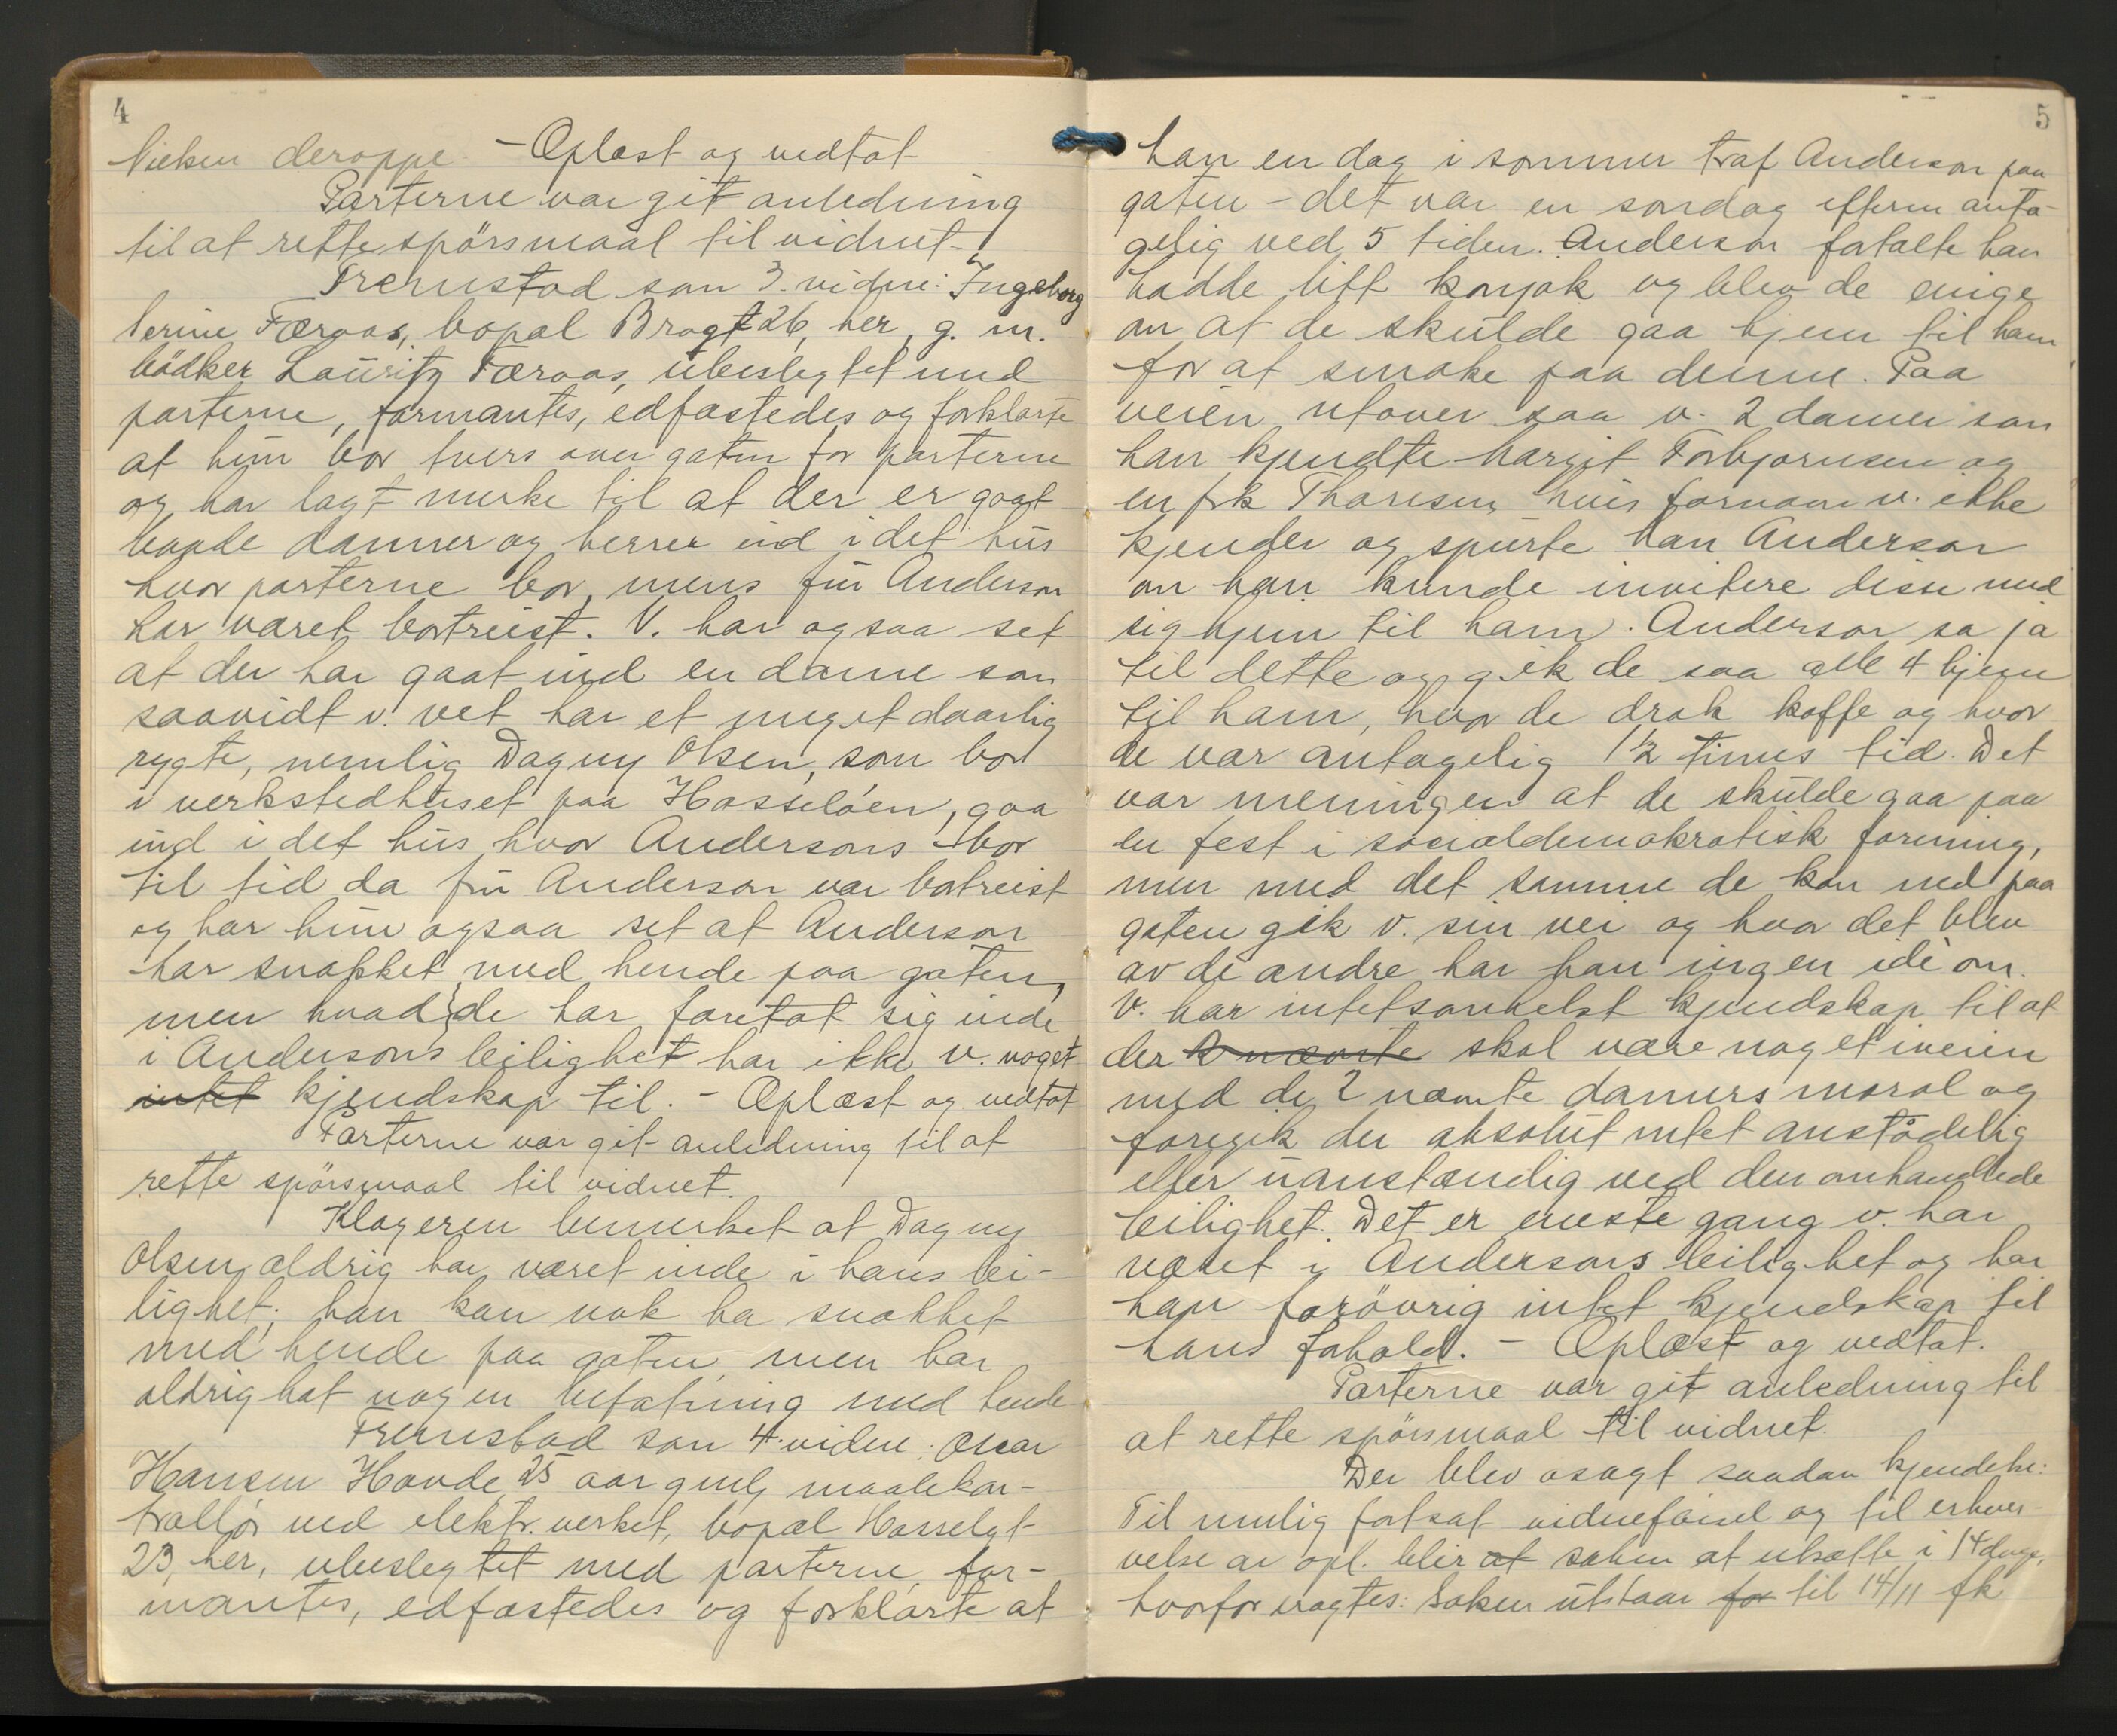 4
deroppe. - Oplæst og vedtat
Parterne var git anledning
til at rette spörsmaal til vidnet.
Fremstod som 3. vidne: Ingeborg
Færaas, bopæl Bragt 26, her, g. m.
bödker Lauritz Færaas, ubeslegtet med
parterne, formantes, edfæstedes og forklarte
at hun bor tvers over gaten for parterne
og har lagt merke til at der er gaat
baade damer og herrer ind i det hus
hvor parterne bor, mens fru Anderson
har været bortreist. V. har ogsaa set
at der har gaat ind en dame som
saavidt v. vet har et meget daarlig
rygte, nemlig Dagny Olsen, som bor
i verkstedhuset paa Hasseløen, gaa
ind i det hus hvor Andersons bor
til tid da fru Anderson var bortreist
og har hun ogsaa set at Anderson
har snakket med hende paa gaten,
men hvad de har foretat sig inde
i Andersons leilighet har ikke v. noget
intet kjendskap til. - Oplæst og vedtat
Parterne var git anledning til at
rette spörsmaal til vidnet.
Klageren bemerket at Dagny
Olsen aldrig har været inde i hans lei-
lighet; han kan nok ha snakket
med hende paa gaten, men har
aldrig hat nogen befatning med hende
Fremstod som 4. vidne: Oscar
Hansen Hovde 25 aar gml, maalekon-
trollør ved elektr. verket, bopæl Hasselgt
23, her, ubeslegtet med parterne, for-
mantes, edfæstedes og forklarte at
5
han en dag i sommer traf Anderson paa
gaten - det var en søndag efterm anta-
gelig ved 5 tiden. Anderson fortalte han
hadde litt konjak og blev de enige
om at de skulde gaa hjem til ham
for at smake paa denne. Paa
veien utover saa v. 2 damer som
han kjendte Margit Torbjørnsen og
en frk Thoresen hvis fornavn v. ikke
kjender og spurte han Anderson
om han kunde invitere disse med
sig hjem til ham. Anderson sa ja
til dette og gik de saa alle 4 hjem
til ham, hvor de drak kaffe og hvor
de var antagelig 1½ times tid. Det
var meningen at de skulde gaa paa
en fest i socialdemokratisk forening,
men med det samme de kom ned paa
gaten gik v. sin vei og hvor det blev
av de andre har han ingen idé om.
V. har intetsomhelst kjendskap til at
der 2 nævnte skal være noget iveien
med de 2 nævnte damers moral og
foregik der absolut intet anstødelig
eller uanstændig ved den omhandlede
leilighet. Det er eneste gang v. har
været i Andersons leilighet og har
han forövrig intet kjendskap til
hans forhold. - Oplæst og vedtat.
Parterne var git anledning til
at rette spörsmaal til vidnet.
Der blev avsagt saadan kjendelse:
Til mulig fortsat vidneførsel og til erhver-
velse av opl. blir at saken at utsætte i 14 dage,
hvorfor eragtes: Saken utstaar for til 14/11 fk